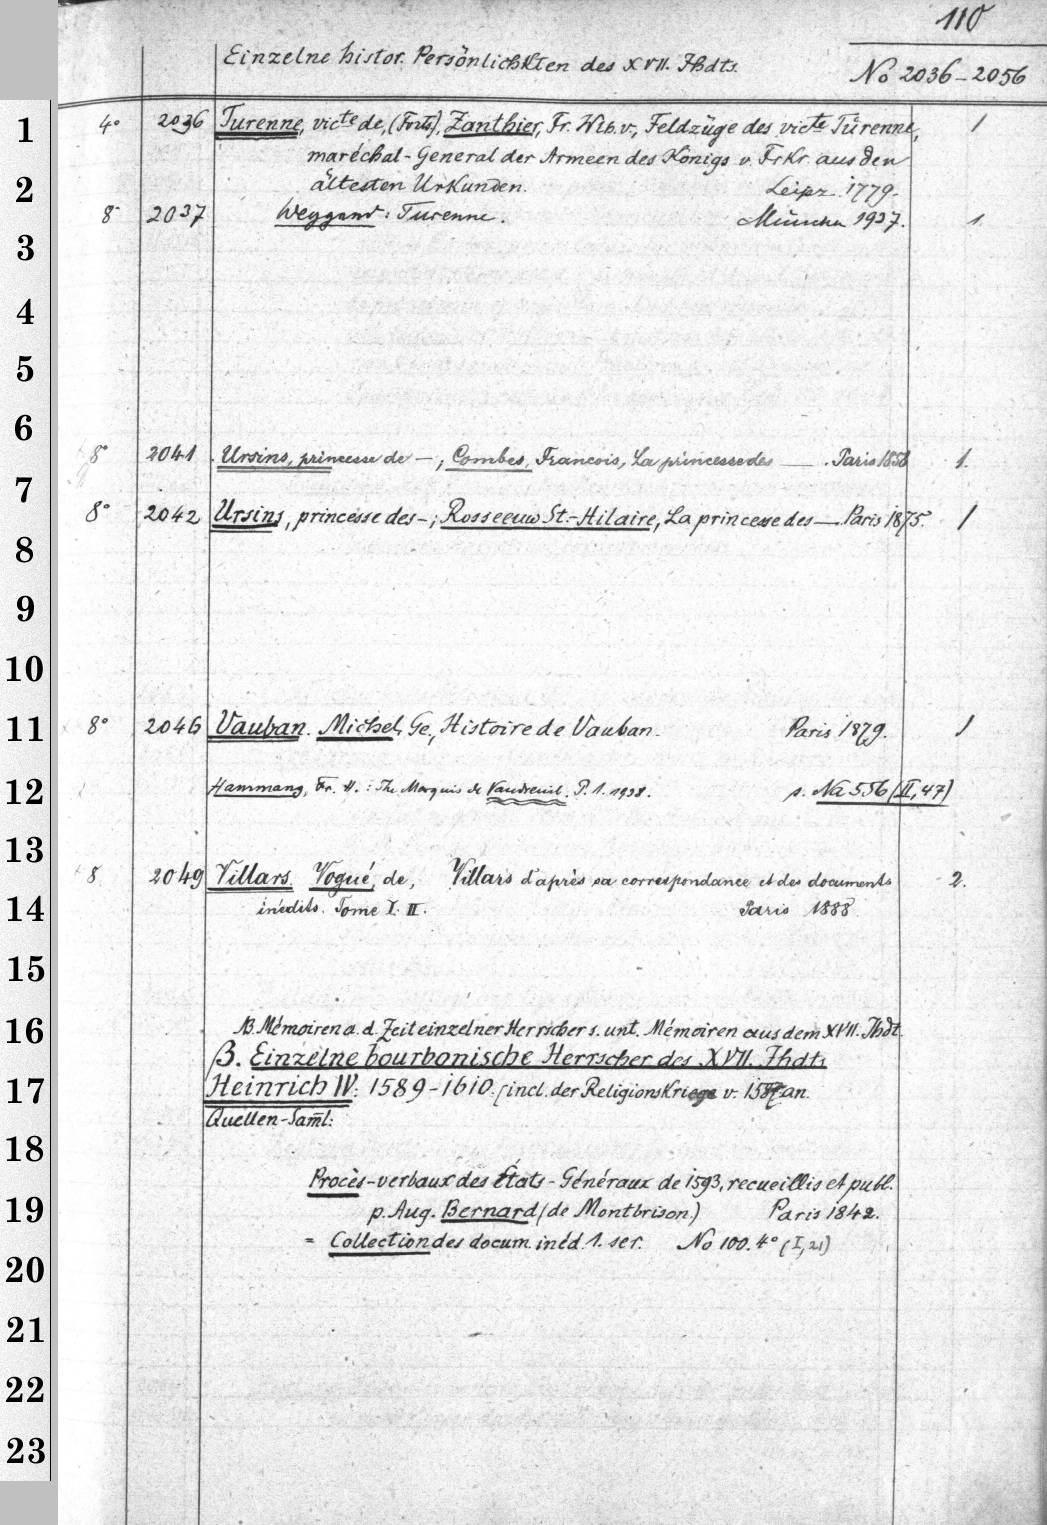 110
Einzelne histor. Persönlichkten des XVII. Jhdts.
No 2036-2056
1
4° 2036 Turenne, victe de, (Forts), Zanthier, Fr. Wlb. v., Feldzüge des victe Türenne, 1
maréchal-General der Armeen des Königs v. Frkr. aus den
2
ältesten Urkunden. Leipz. 1779.
8° 2037 Weygand: Turenne. München 1937. 1.
3
4
5
6
8° 2041 Ursins, princesse de —; Combes, Francois, La princesse des —. Paris 1858 1.
7
8° 2042 Ursins, princesse des -; Rosseeuw St.-Hilaire, La princesse des — Paris 1875. 1
8
9
10
11
8° 2046 Vauban. Michel, Ge, Histoire de Vauban. Paris 1879. 1
12
Hammang, Fr. H.: The Marquis de Vaudreuil. P. 1. 1938. s. Na 556 (II, 47)
13
8 2049 Villars. Vogué, de, Villars d'après sa correspondance et des documents 2.
14
inédits. Tome I. II. Paris 1888
15
16
NB. Mémoiren a. d. Zeit einzelner Herrscher s. unt. Mémoiren aus dem XVII. Jhdt.
β. Einzelne bourbonische Herrscher des XVII. Jhdts
17
Heinrich IV: 1589-1610. (incl. der Religionskriege v. an.
Quellen-Saml:
18
Procès-verbaux des États-Généraux de 1593, recueillis et publ.
19
p. Aug. Bernard (de Montbrison) Paris 1842.
= Collection des docum. inéd. 1. ser. No 100. 4° (I, 21)
20
21
22
23